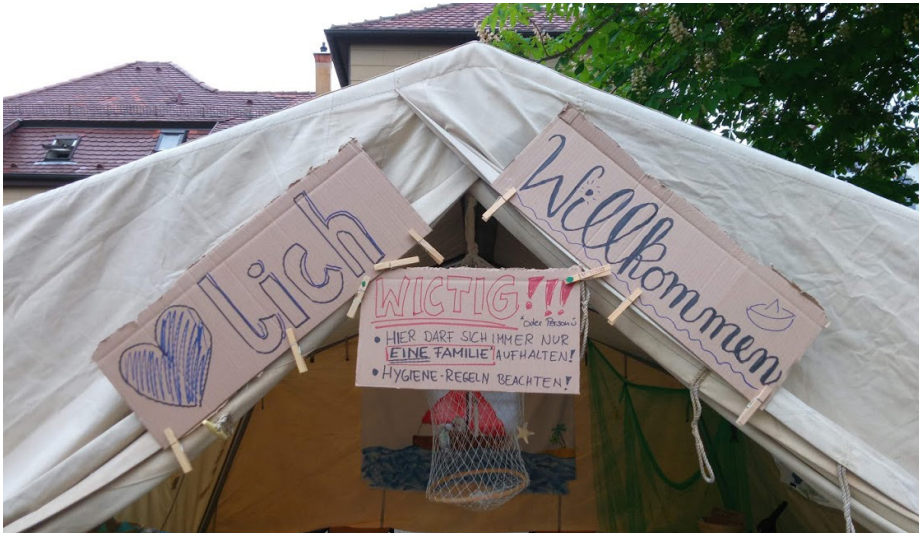 lich
Willkommen
WICTIG!!!
*oder Person
• HIER DARF SICH IMMER NUR
EINE FAMILIE* AUFHALTEN!
• HYGIENE-REGELN BEACHTEN!